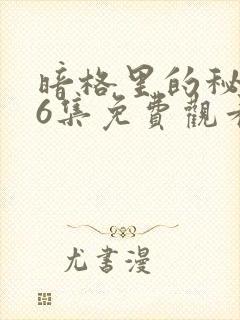 暗格里的秘
6集免費觀看
尤書漫